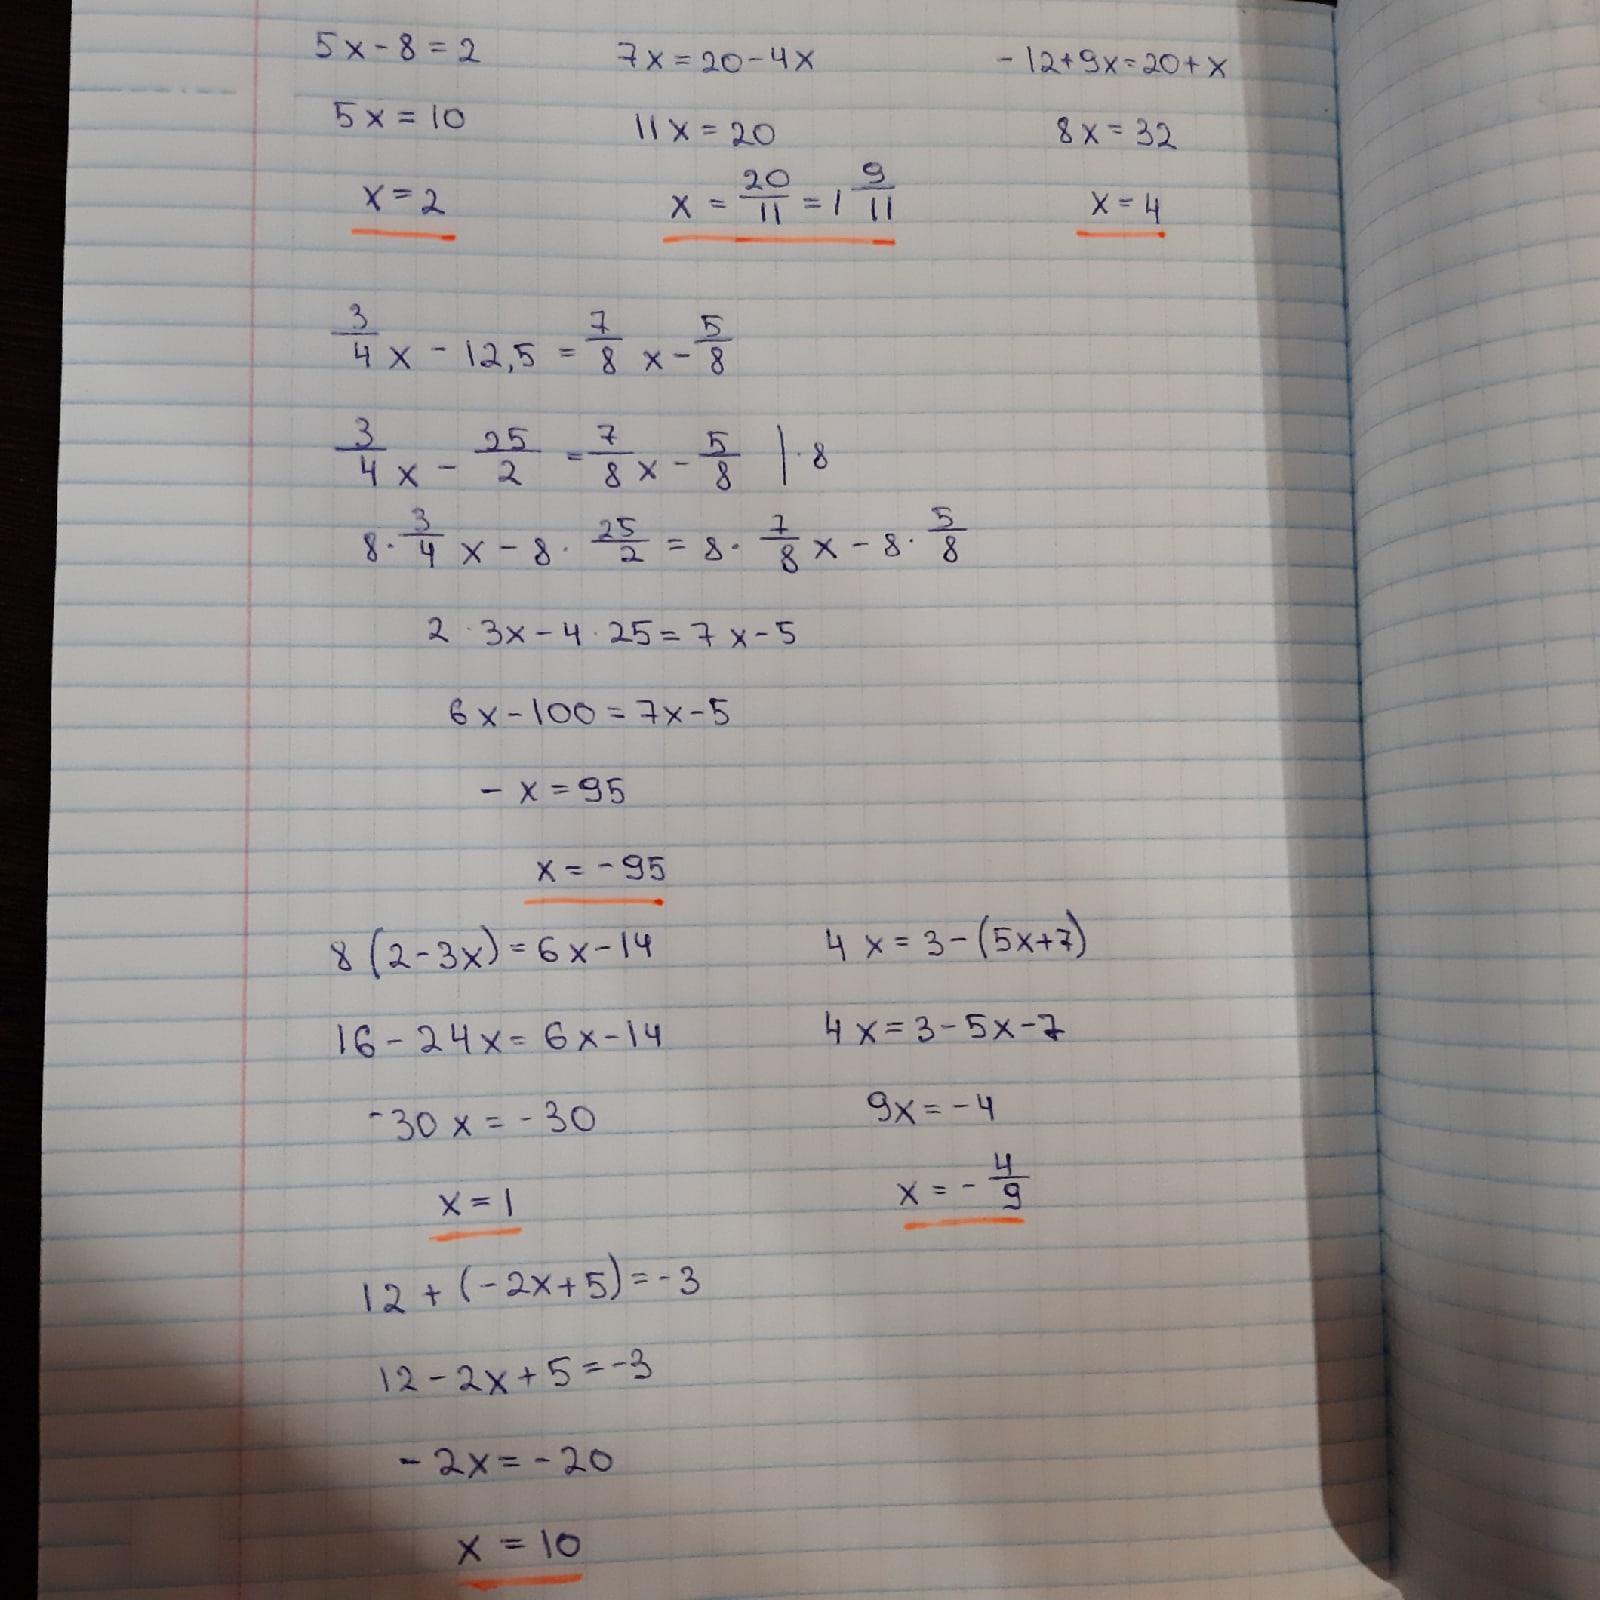 5x-8=2
5x=10
x=2
7x=20-4x
11x=20
x=20/11=1 9/11
-12+9x=20+x
8x=32
x=4
3/4x-12,5=7/8x-5/8
3/4x-25/2=7/8x-5/8 |·8
8·3/4x-8·25/2=8·7/8x-8·5/8
2·3x-4·25=7x-5
6x-100=7x-5
-x=95
x=-95
8(2-3x)=6x-14
16-24x=6x-14
-30x=-30
x=1
4x=3-(5x+7)
4x=3-5x-7
9x=-4
x=-4/9
12+(-2x+5)=-3
12-2x+5=-3
-2x=-20
x=10